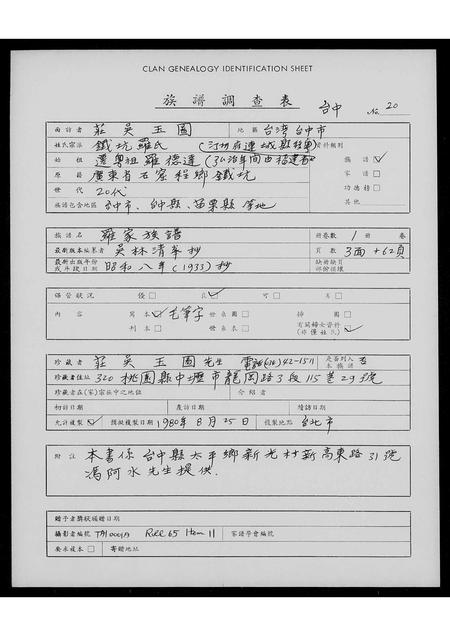 CLAN GENEALOGY IDENTIFICATION SHEET
族譜調查表 台中 No. 20
面訪者 莊吳玉圖 地區 台灣台中市
姓氏宗派 鐵坑羅氏 資料類別
始祖 遷粵祖羅德達 族譜 ☑
原籍 廣東省石窟程鄉鐵坑 家譜 □
世代 20代 功德榜 □
族譜包含地區 台中市、台中縣、苗栗縣等地 其他
族譜名 羅家族譜 冊卷數 1 冊 卷
最新版本編纂者 吳林清爭抄 頁數 3面+62頁
最新出版年份或年段日期 昭和八年(1933)抄 缺冊缺頁
保管狀況 優□ 良☑ 可□ 劣□
內容 寫本☑毛筆字 世系圖□ 排圖□
刊本□ 世系表□
珍藏者 莊吳玉圖先生 是否列入本族譜 否
珍藏者住址 320 桃園縣中壢市龍岡路3段115巷29號
珍藏者在(家)宗族中之地位 介紹者
初訪日期 產訪日期 續訪日期
允許複製☑ 擬複製日期 1980年8月25日 複製地點 台北市
附註 本書係台中縣太平鄉新光村新高東路31號
馮阿水先生提供.
贈予者獎狀頒贈日期
攝影者編號 Roll 65 Item 11 家譜學會編號
要求複本□ 寄贈地址